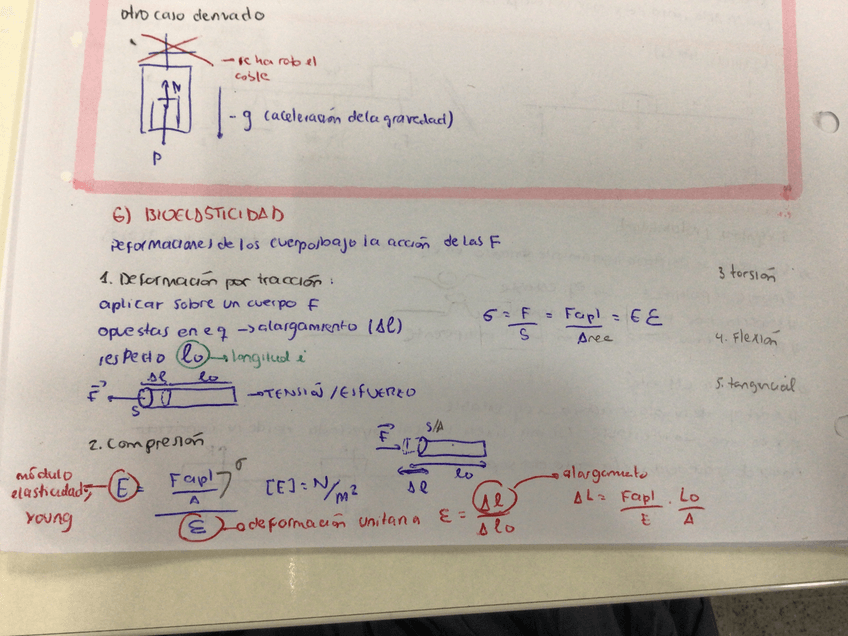 otro caso derivado
→ se ha roto el
cable
N
- g (aceleración de la gravedad)
P
6) BIOELASTICIDAD
Deformaciones de los cuerpos bajo la acción de las F
1. Deformación por tracción:
aplicar sobre un cuerpo F
opuestas en eq → alargamiento (Δl)
respecto lo → longitud i
σ = F/S = Fapl/Area = E ε
3 torsión
4. Flexión
5. tangencial
Δl lo
F
S
→ TENSIÓN / ESFUERZO
2. Compresión
S/A
F
lo
Δl
módulo
elasticidad
young
E = (Fapl/A)/ε
σ
[E] = N/m²
→ deformación unitaria ε = Δl/Δlo
→ alargamieto
ΔL = Fapl/E · Lo/A